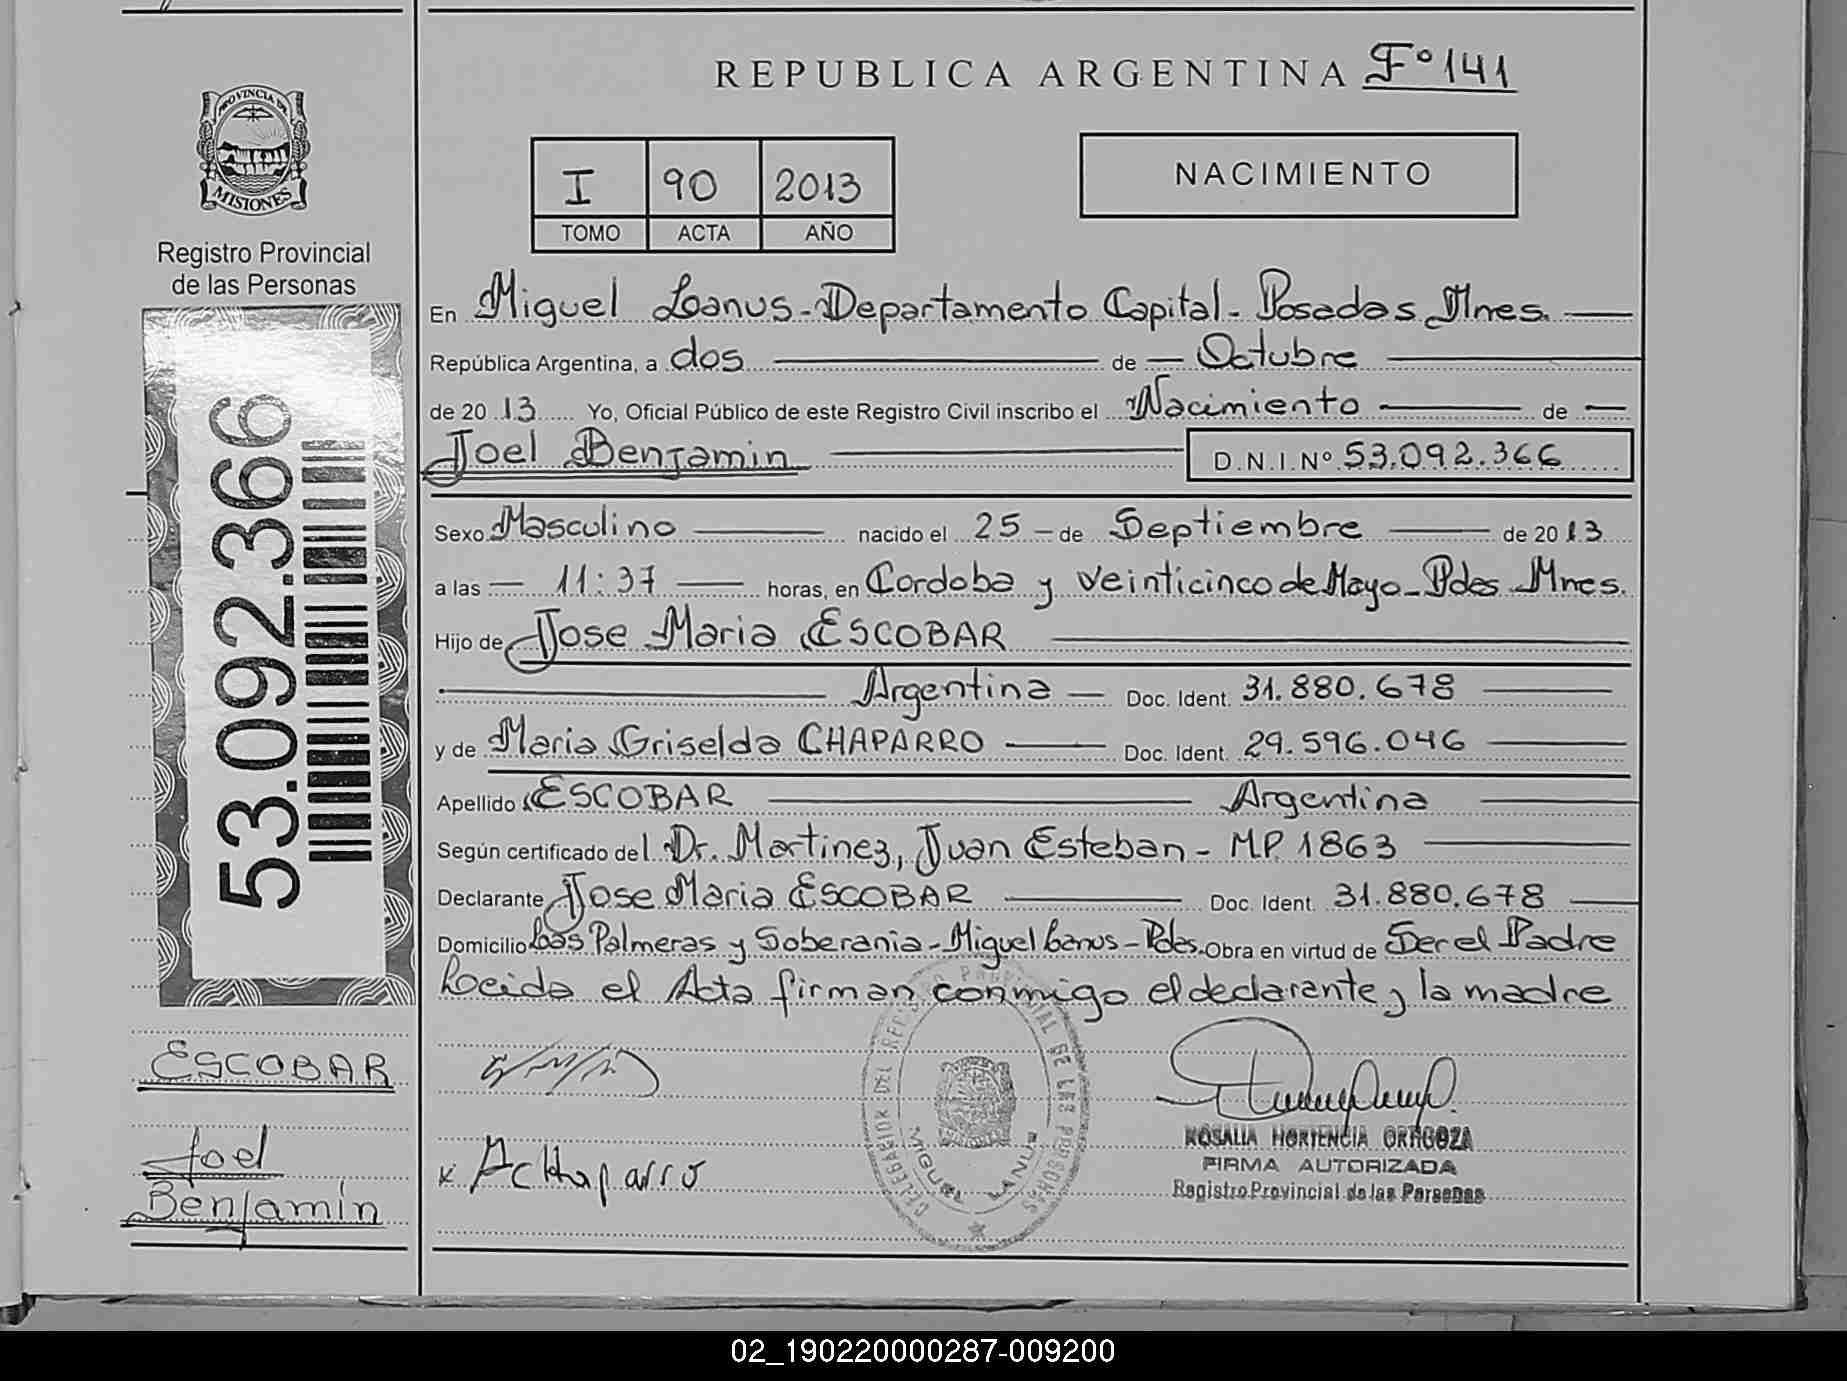 REPUBLICA ARGENTINA Fº 141
PROVINCIA DE
MISIONES
Registro Provincial
de las Personas
I 90 2013
TOMO ACTA AÑO
NACIMIENTO
En Miguel Lanus - Departamento Capital - Posadas Mnes.
República Argentina, a dos de Octubre
de 20 13 Yo, Oficial Público de este Registro Civil inscribo el Nacimiento de
Joel Benjamin D.N.I.Nº 53.092.366
53.092.366
Sexo Masculino nacido el 25 - de Septiembre de 20 13
a las 11:37 horas, en Cordoba y Veinticinco de Mayo - Pdas Mnes.
Hijo de Jose Maria ESCOBAR
Argentina Doc. Ident. 31.880.678
y de Maria Griselda CHAPARRO Doc. Ident. 29.596.046
Apellido ESCOBAR Argentina
Según certificado del Dr. Martinez, Juan Esteban - MP. 1863
Declarante Jose Maria ESCOBAR Doc. Ident. 31.880.678
Domicilio Las Palmeras y Soberania - Miguel Lanus - Pdas. Obra en virtud de Ser el Padre
Leida el Acta firman conmigo el declarante y la madre
ESCOBAR
Joel
Benjamin
x AcHaparro
DELEGACION DEL REGISTRO PROVINCIAL DE LAS PERSONAS
MIGUEL LANUS
ROSALIA HORTENCIA ORTIGOZA
FIRMA AUTORIZADA
Registro Provincial de las Personas
02_190220000287-009200